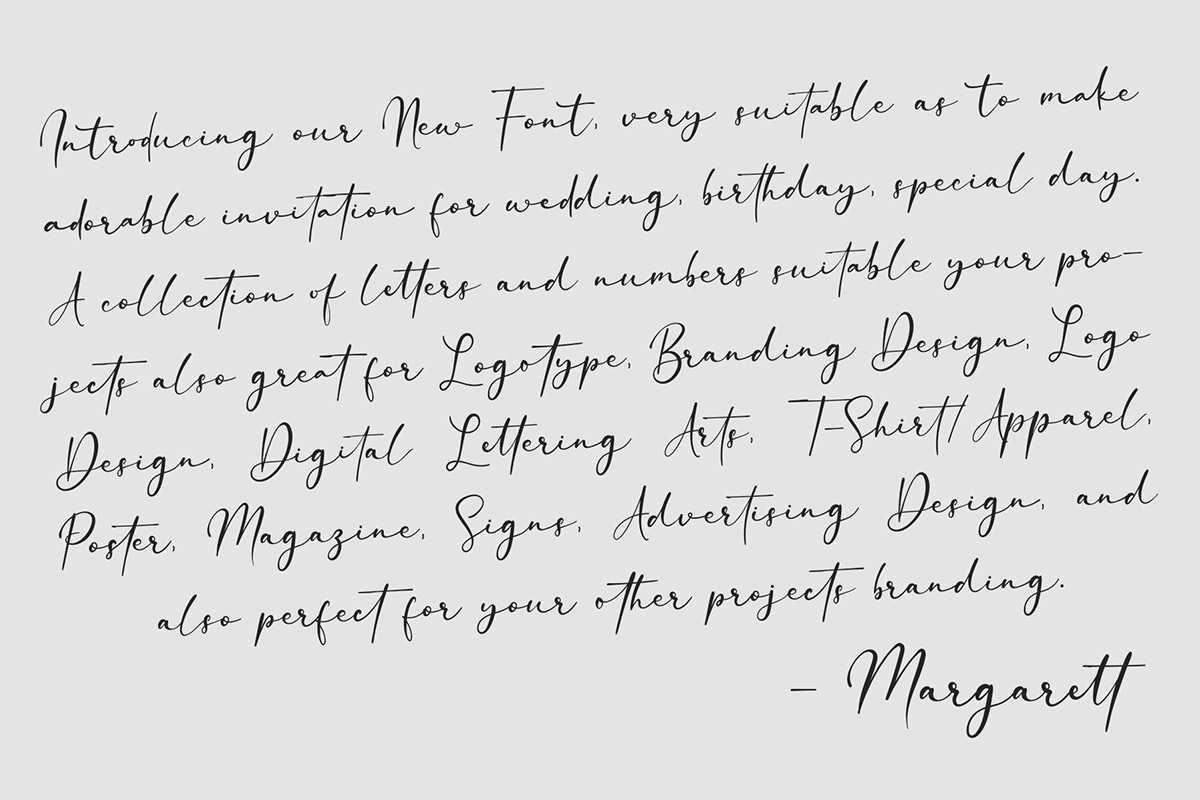 Introducing our New Font, very suitable as to make
adorable invitation for wedding, birthday, special day.
A collection of letters and numbers suitable your pro-
jects also great for Logotype, Branding Design, Logo
Design, Digital Lettering Arts, T-Shirt/Apparel,
Poster, Magazine, Signs, Advertising Design, and
also perfect for your other projects branding.
- Margarett